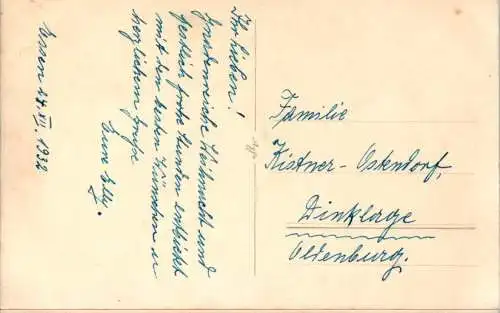 Ihr Lieben!
Gnadenreiche Weihnacht und
festlich frohe Stunden entbietet
mit den besten Wünschen u
herzlichem Gruße
Eure Elly.
Essen 24. XI. 1932
Familie
Kistner-Ostendorf,
Dinklage
Oldenburg.